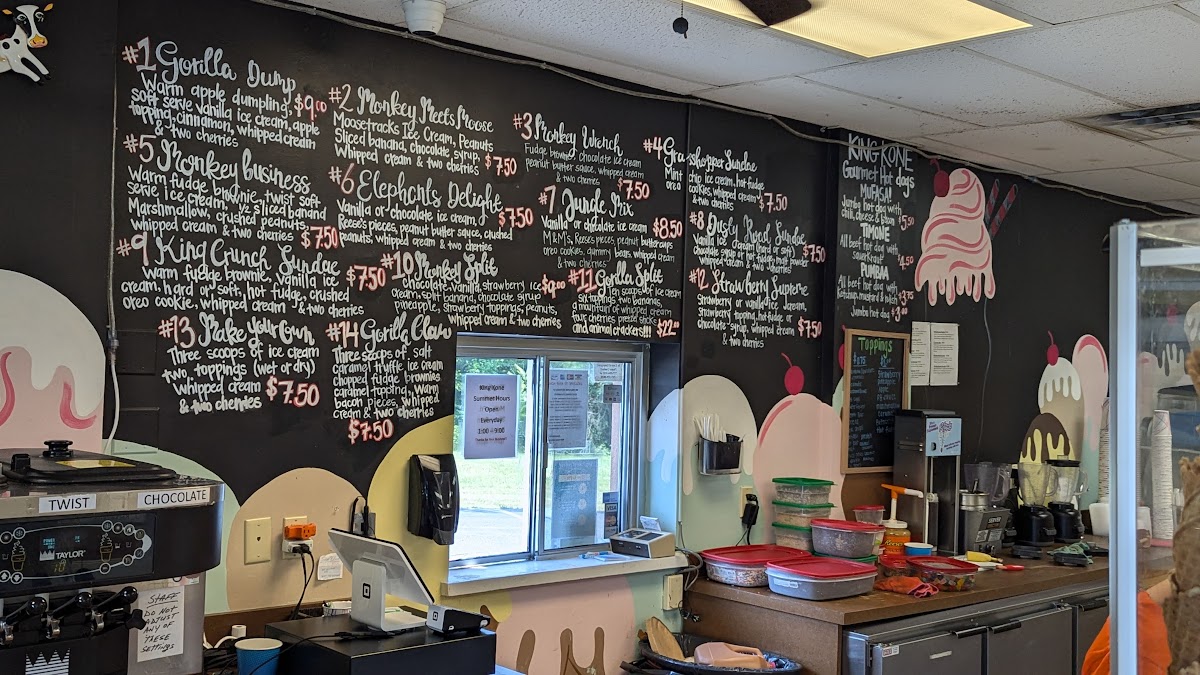 #1 Gorilla Dump
Warm apple dumpling, $9.00
soft serve vanilla ice cream, apple
topping, cinnamon, whipped cream
& two cherries
#2 Monkey Meets Moose
Moosetracks Ice Cream, Peanuts
Sliced banana, chocolate syrup
Whipped cream & two cherries $7.50
#3 Monkey Wrench
Fudge brownie, chocolate ice cream
peanut butter sauce, whipped cream
& two cherries $7.50
#4 Grasshopper Sundae
Mint chip ice cream, hot fudge
oreo cookies, whipped cream
& two cherries $7.50
#5 Monkey Business
Warm fudge brownie, twist soft
serve ice cream, sliced banana
Marshmallow, crushed peanuts
whipped cream & two cherries $7.50
#6 Elephants Delight
Vanilla or chocolate ice cream $7.50
Reese's pieces, peanut butter sauce, crushed
peanuts, whipped cream & two cherries
#7 Jungle Mix
Vanilla or chocolate ice cream $8.50
M&M's, Reeses pieces, peanut butter cups
oreo cookies, gummy bears whipped cream
& two cherries
#8 Dusty Road Sundae
Vanilla Ice Cream (hard or soft) $7.50
Chocolate syrup or hot fudge, malt powder
whipped cream & two cherries
#9 King Crunch Sundae
Warm fudge brownie, vanilla ice $7.50
cream, hard or soft, hot fudge, crushed
oreo cookie, whipped cream & two cherries
#10 Monkey Split
chocolate, vanilla, strawberry ice $9.00
cream, split banana, chocolate syrup
pineapple, strawberry toppings, peanuts,
whipped cream & two cherries
#11 Gorilla Split
Ten scoops of ice cream
six toppings, two bananas,
a mountain of whipped cream
four cherries, pretzel sticks
and animal crackers!!! $22.00
#12 Strawberry Supreme
Strawberry or vanilla ice cream,
Strawberry topping, hot fudge or
chocolate syrup, whipped cream
& two cherries $7.50
#13 Make Your Own
Three scoops of ice cream
two toppings (wet or dry)
whipped cream $7.50
& two cherries
#14 Gorilla Claw
Three scoops of salt
caramel truffle ice cream
chopped fudge brownies
caramel topping, warm
bacon pieces, whipped
cream & two cherries
$7.50
KING KONE
Gourmet Hot dogs
MUFASA!
Jumbo hot dog with
chili, cheese & bacon
$5.50
TIMONE
All beef hot dog with
sauerkraut
$4.50
PUMBAA
All beef hot dog with
Ketchup, mustard & relish $3.75
Jumbo hot dog
Toppings
King Kone
Summer Hours
Open
Everyday!
1:00 - 9:00
VISA
TWIST
CHOCOLATE
TAYLOR
STAFF
DO NOT
ADJUST
ANY OF
THESE
SETTINGS